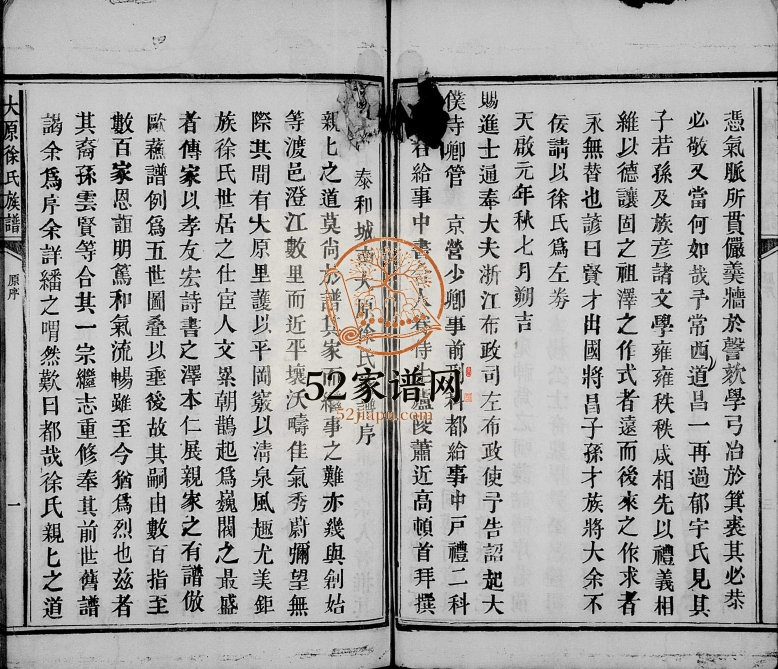 憑氣脈所貫儼羹牆於謦欬學弓冶於箕裘其必恭
必敬又當何如哉予常西道昌一再過郁宇氏見其
子若孫及族彦諸文學雍雍秩秩咸相先以禮義相
維以德讓固之祖澤之作式者遠而後來之作求者
永無替也諺曰賢才出國將昌子孫才族將大余不
佞請以徐氏爲左券
天啟元年秋七月朔吉
賜進士通奉大夫浙江布政司左布政使予告詔起大
僕寺卿管 京營少卿事前刑科都給事中戶禮二科
給事中書 人 侍生廬陵蕭近高頓首拜撰
泰和城 大原徐氏 序
親上之道莫尚於譜其家而繼事之難亦幾與創始
等渡邑澄江數里而近平壤沃疇佳氣秀蔚彌望無
際其間有大原里護以平岡竅以清泉風𧻓尤美鉅
族徐氏世居之仕宦人文纍朝鵲起爲巍閥之最盛
者傳家以孝友宏詩書之澤本仁展親家之有譜倣
歐蘇譜例爲五世圖疊以垂後故其嗣由數百指至
數百家恩誼明篤和氣流暢雖至今猶爲烈也兹者
其裔孫雲賢等合其一宗繼志重修奉其前世舊譜
謁余爲序余詳繙之喟然歎曰都哉徐氏親上之道
大原徐氏族譜
原序
一
52家谱网
52jiapu.com